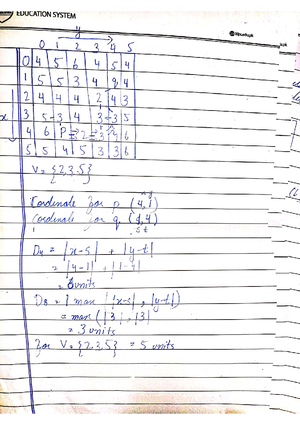 EDUCATION SYSTEM
y
0 1 2 3 4 5
0 4 5 6 4 5 4
1 5 5 3 4 9 4
2 4 4 4 2 4 3
x 3 5 3 4 3 3 5
4 6 P 2 2 3 4 6
5 5 5 4 5 3 3 6
V = {2,3,5}
x y
Cordinate for p (4,1)
Cordinate for q (4,4)
s t
D4 = |x-s| + |y-t|
= |4-1| + |1-4|
= 6 units
D8 = max |x-s|, |y-t|)
= max (|3|, |3|
= 3 units
For V = {2,3,5} = 5 units